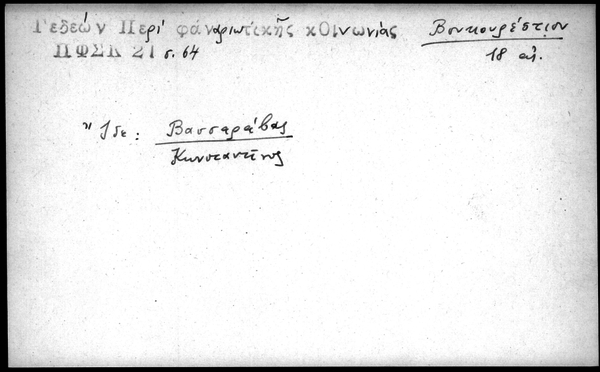 Γεδεών Περί φαναριωτικῆς κοινωνίας
ΠΦΣΚ 21 σ. 64
Βουκουρέστιον
18 αἰ.
Ἴδε: Βασσαράβας
Κωνσταντῖνος